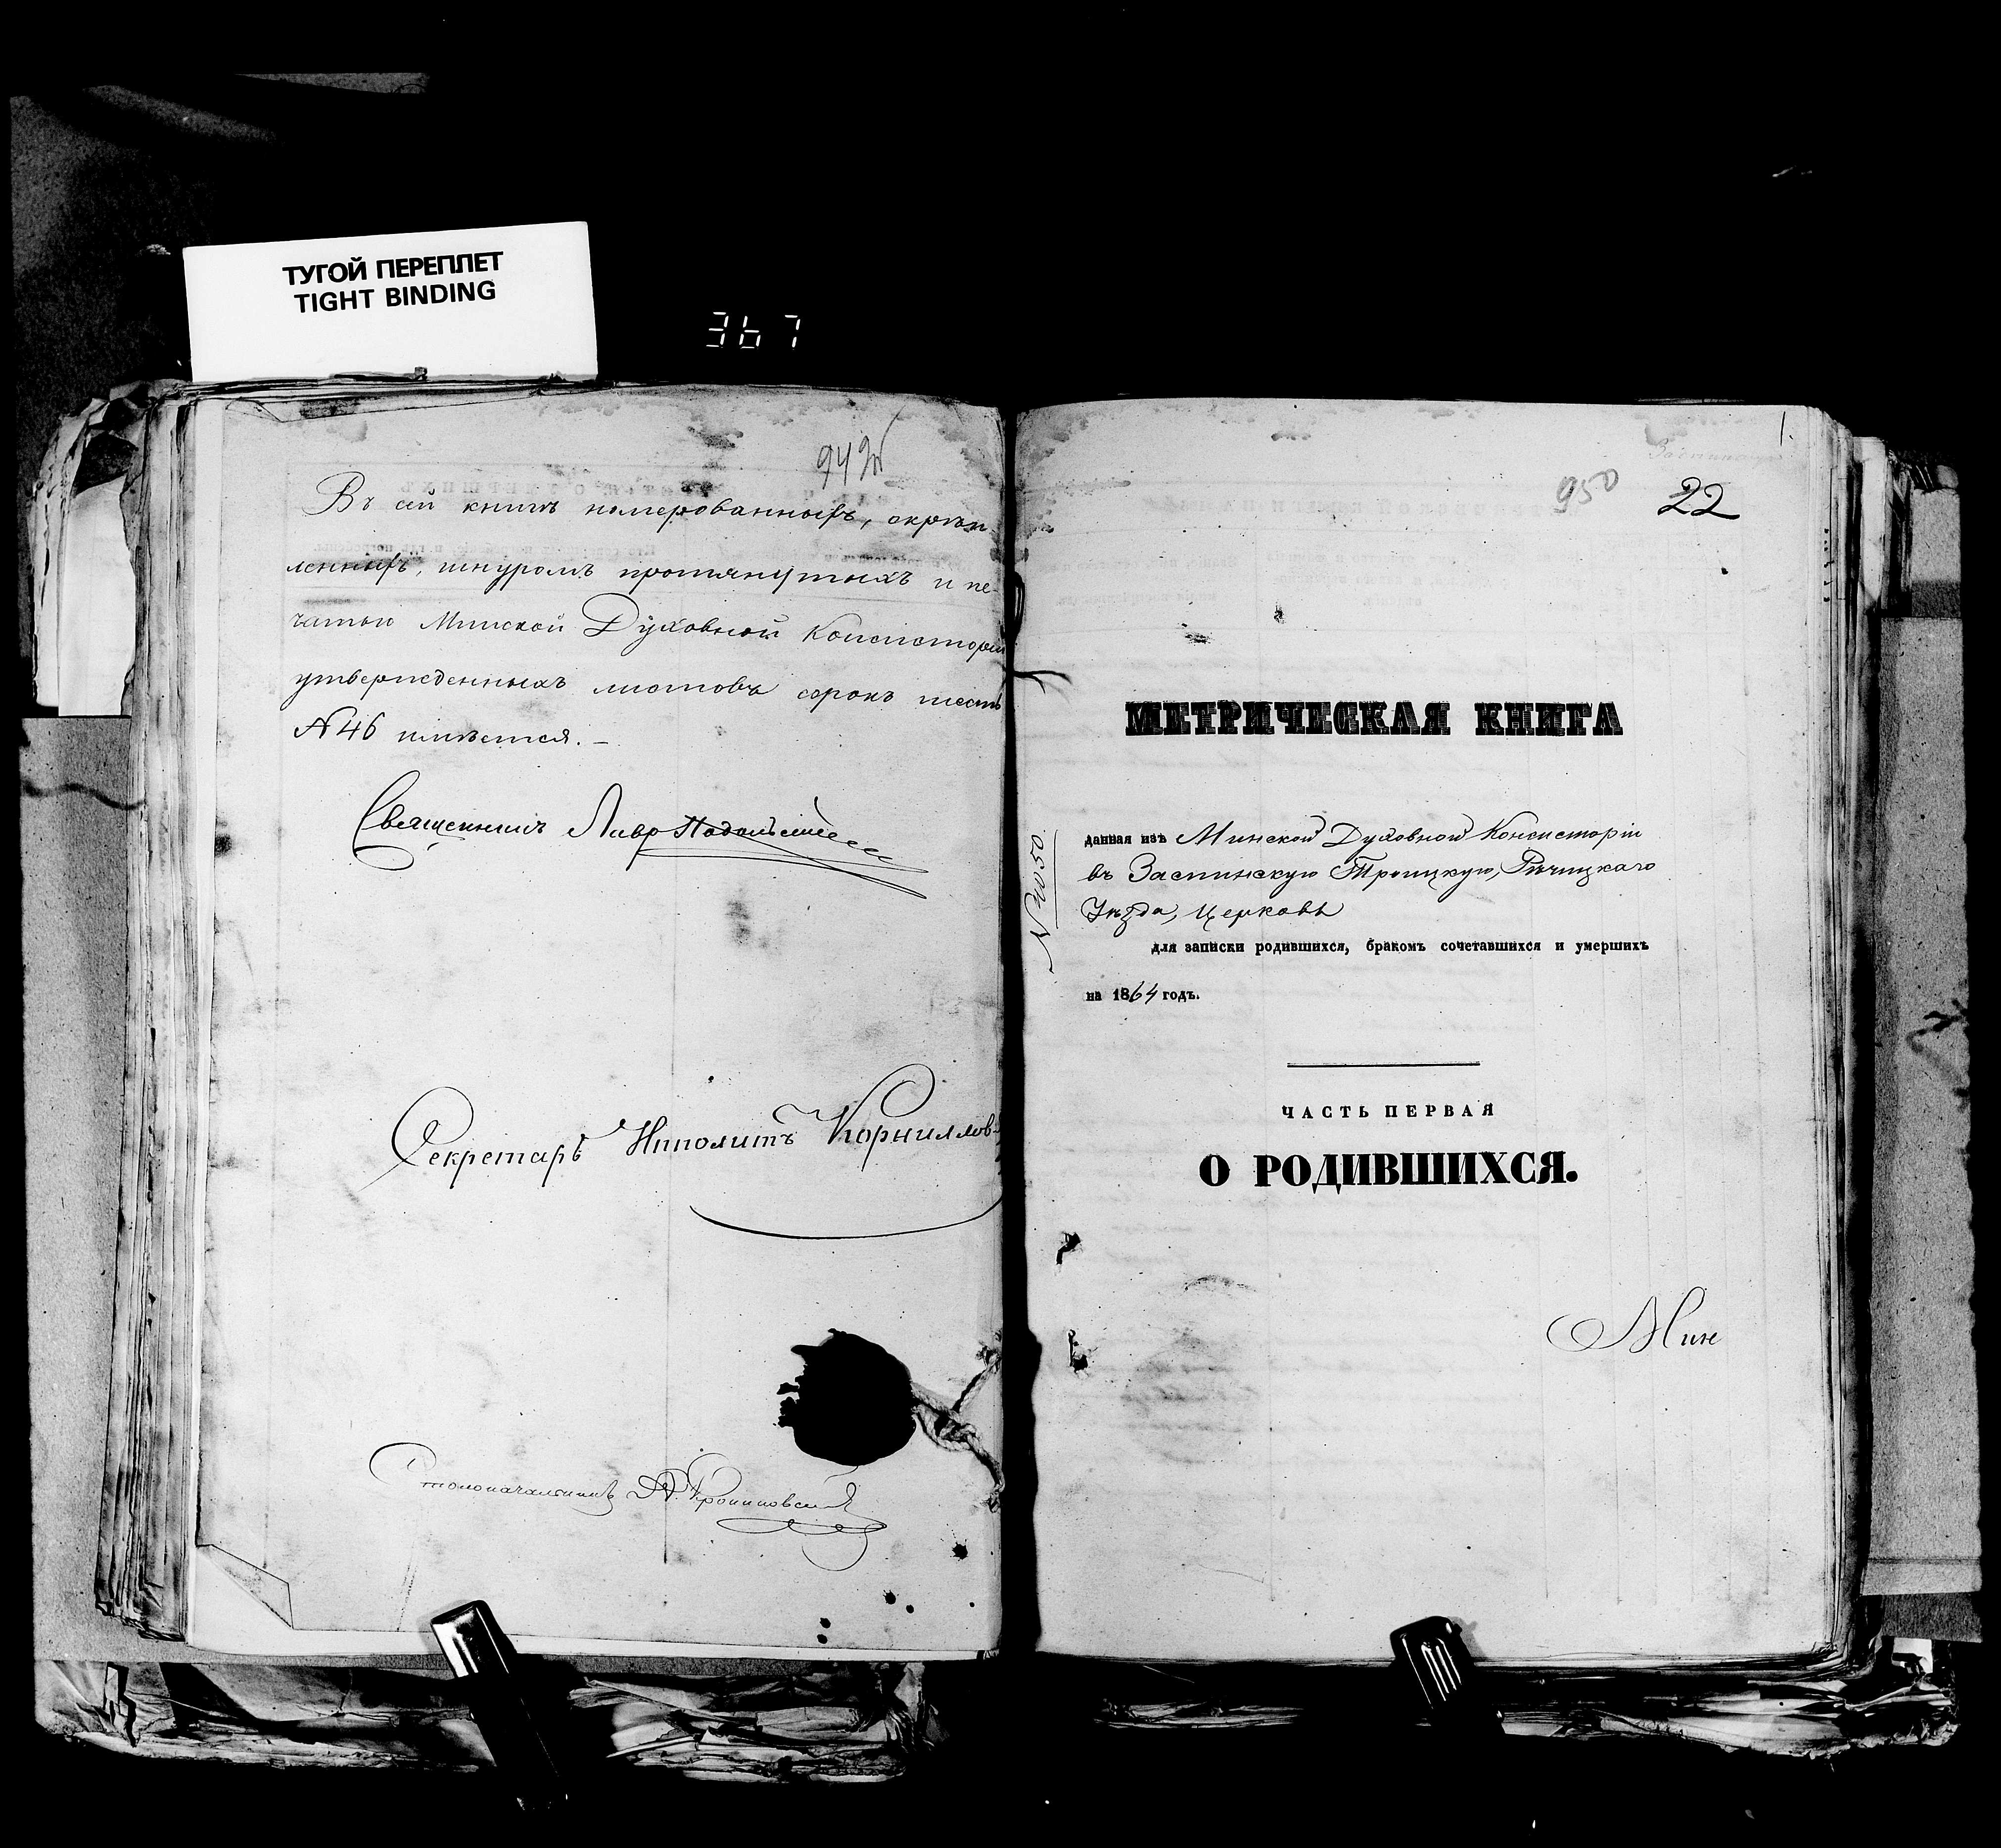 ТУГОЙ ПЕРЕПЛЕТ
TIGHT BINDING
367
Въ сей книгѣ номерованныхъ, скрѣп-
ленныхъ, шнуромъ протянутыхъ и пе-
чатью Минской Духовной Консисторіи
утвержденныхъ листовъ сорокъ шесть
№ 46 имѣется. —
Священникъ Лавр
Секретарь Ипполитъ Корниллов
Столоначальникъ А.
1.
950 22
МЕТРИЧЕСКАЯ КНИГА
данная изъ Минской Духовной Консисторіи
въ Заспинскую Троицкую, Рѣчицкаго
Уѣзда, Церковь
для записки родившихся, бракомъ сочетавшихся и умершихъ
на 1864 годъ.
ЧАСТЬ ПЕРВАЯ
О РОДИВШИХСЯ.
Мин